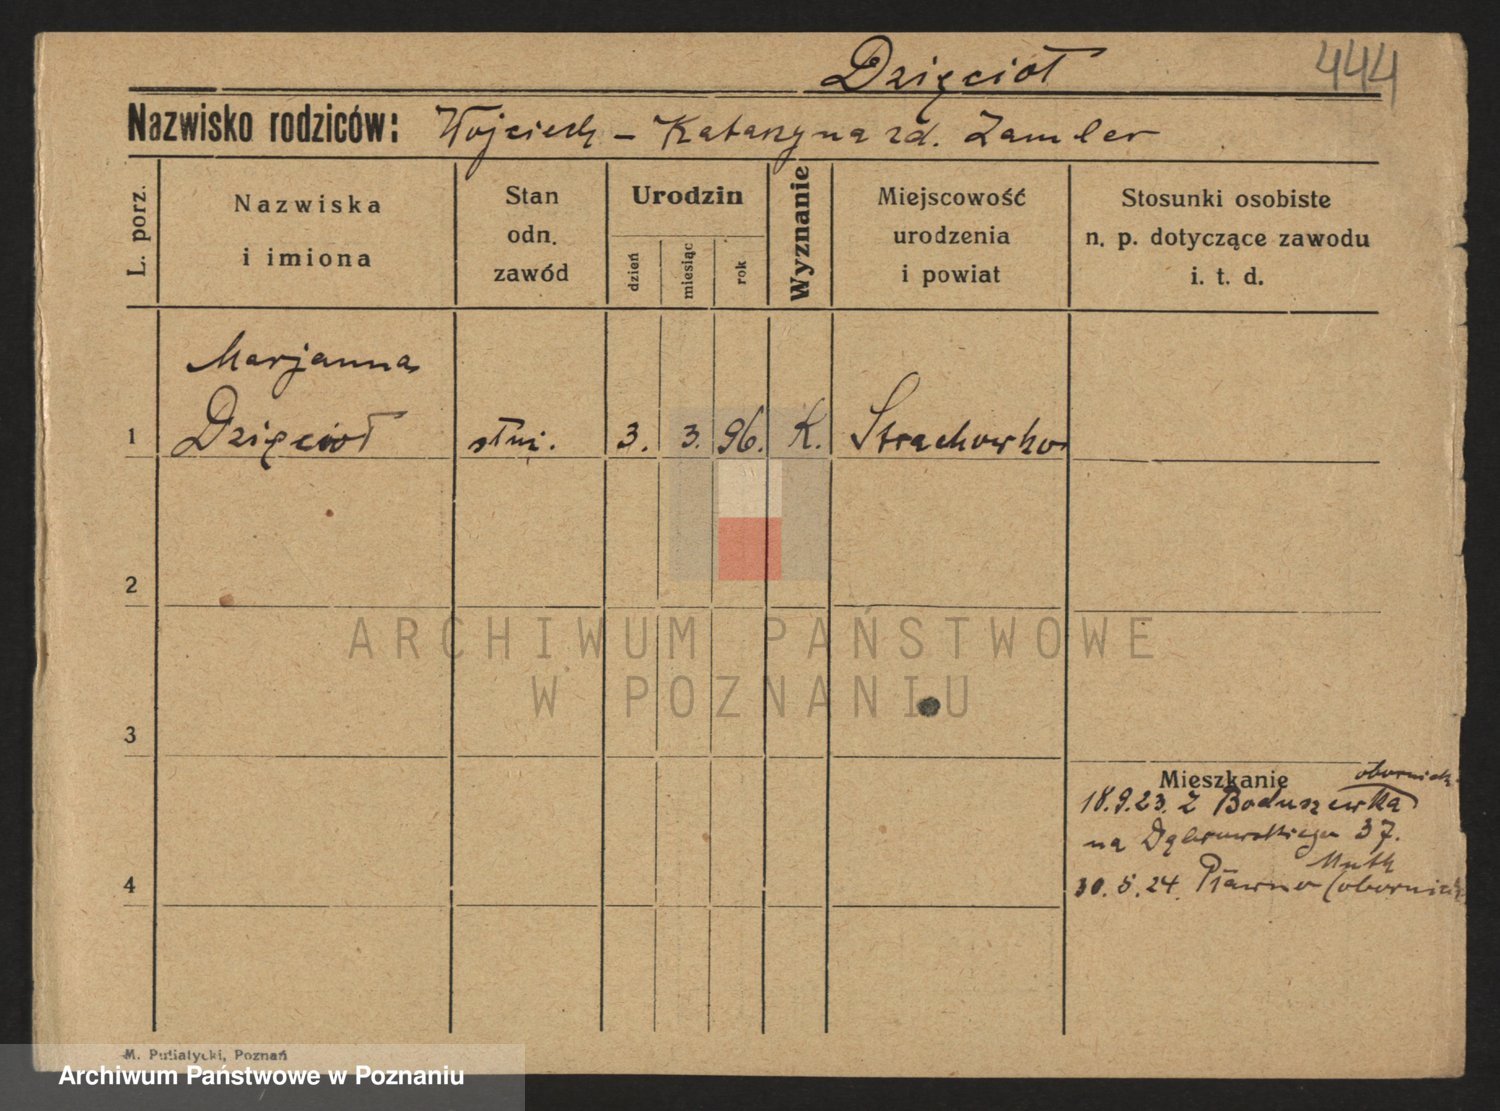 Dzięcioł
444
Nazwisko rodziców: Wojciech – Katarzyna zd. Zamler
L. porz.
Nazwiska
i imiona
Stan
odn.
zawód
Urodzin
dzień
miesiąc
rok
Wyznanie
Miejscowość
urodzenia
i powiat
Stosunki osobiste
n. p. dotyczące zawodu
i. t. d.
Marjanna
1 Dzięcioł służ. 3. 3. 96. K. Strachowko
2
ARCHIWUM PAŃSTWOWE
W POZNANIU
3
Mieszkanie obornick.
18.9.23. z Boduszewka
na Dąbrowskiego 37.
4
30.5.24. Pławno (obornick
M. Putiatycki, Poznań
Archiwum Państwowe w Poznaniu